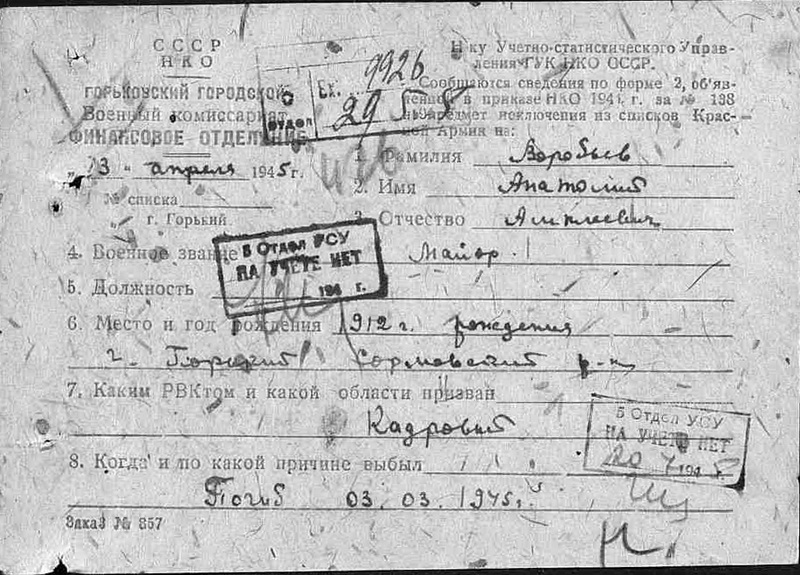 СССР
НКО
ГОРЬКОВСКИЙ ГОРОДСКОЙ
Военный комиссариат
ФИНАНСОВОЕ ОТДЕЛЕНИЕ
"13" апреля 1945 г.
№ списка
г. Горький
Вх. 9926
29 5
отдел
Н-ку Учетно-статистического Управ-
ления ГУК НКО СССР.
Сообщаются сведения по форме 2, об'яв-
ленной в приказе НКО 1941 г. за № 138
на предмет исключения из списков Крас-
ной Армии на:
1. Фамилия Воробьев
2. Имя Анатолий
3. Отчество
5 Отдел УСУ
НА УЧЕТЕ НЕТ
194 г.
4. Военное звание Майор
5. Должность
6. Место и год рождения 1912 г. рождения
г. Горький Сормовский р-н
7. Каким РВКтом и какой области призван
Кадровый
8. Когда и по какой причине выбыл
Погиб 03.03.1945 г.
5 Отдел УСУ
НА УЧЕТЕ НЕТ
20 7 1945
Заказ № 357